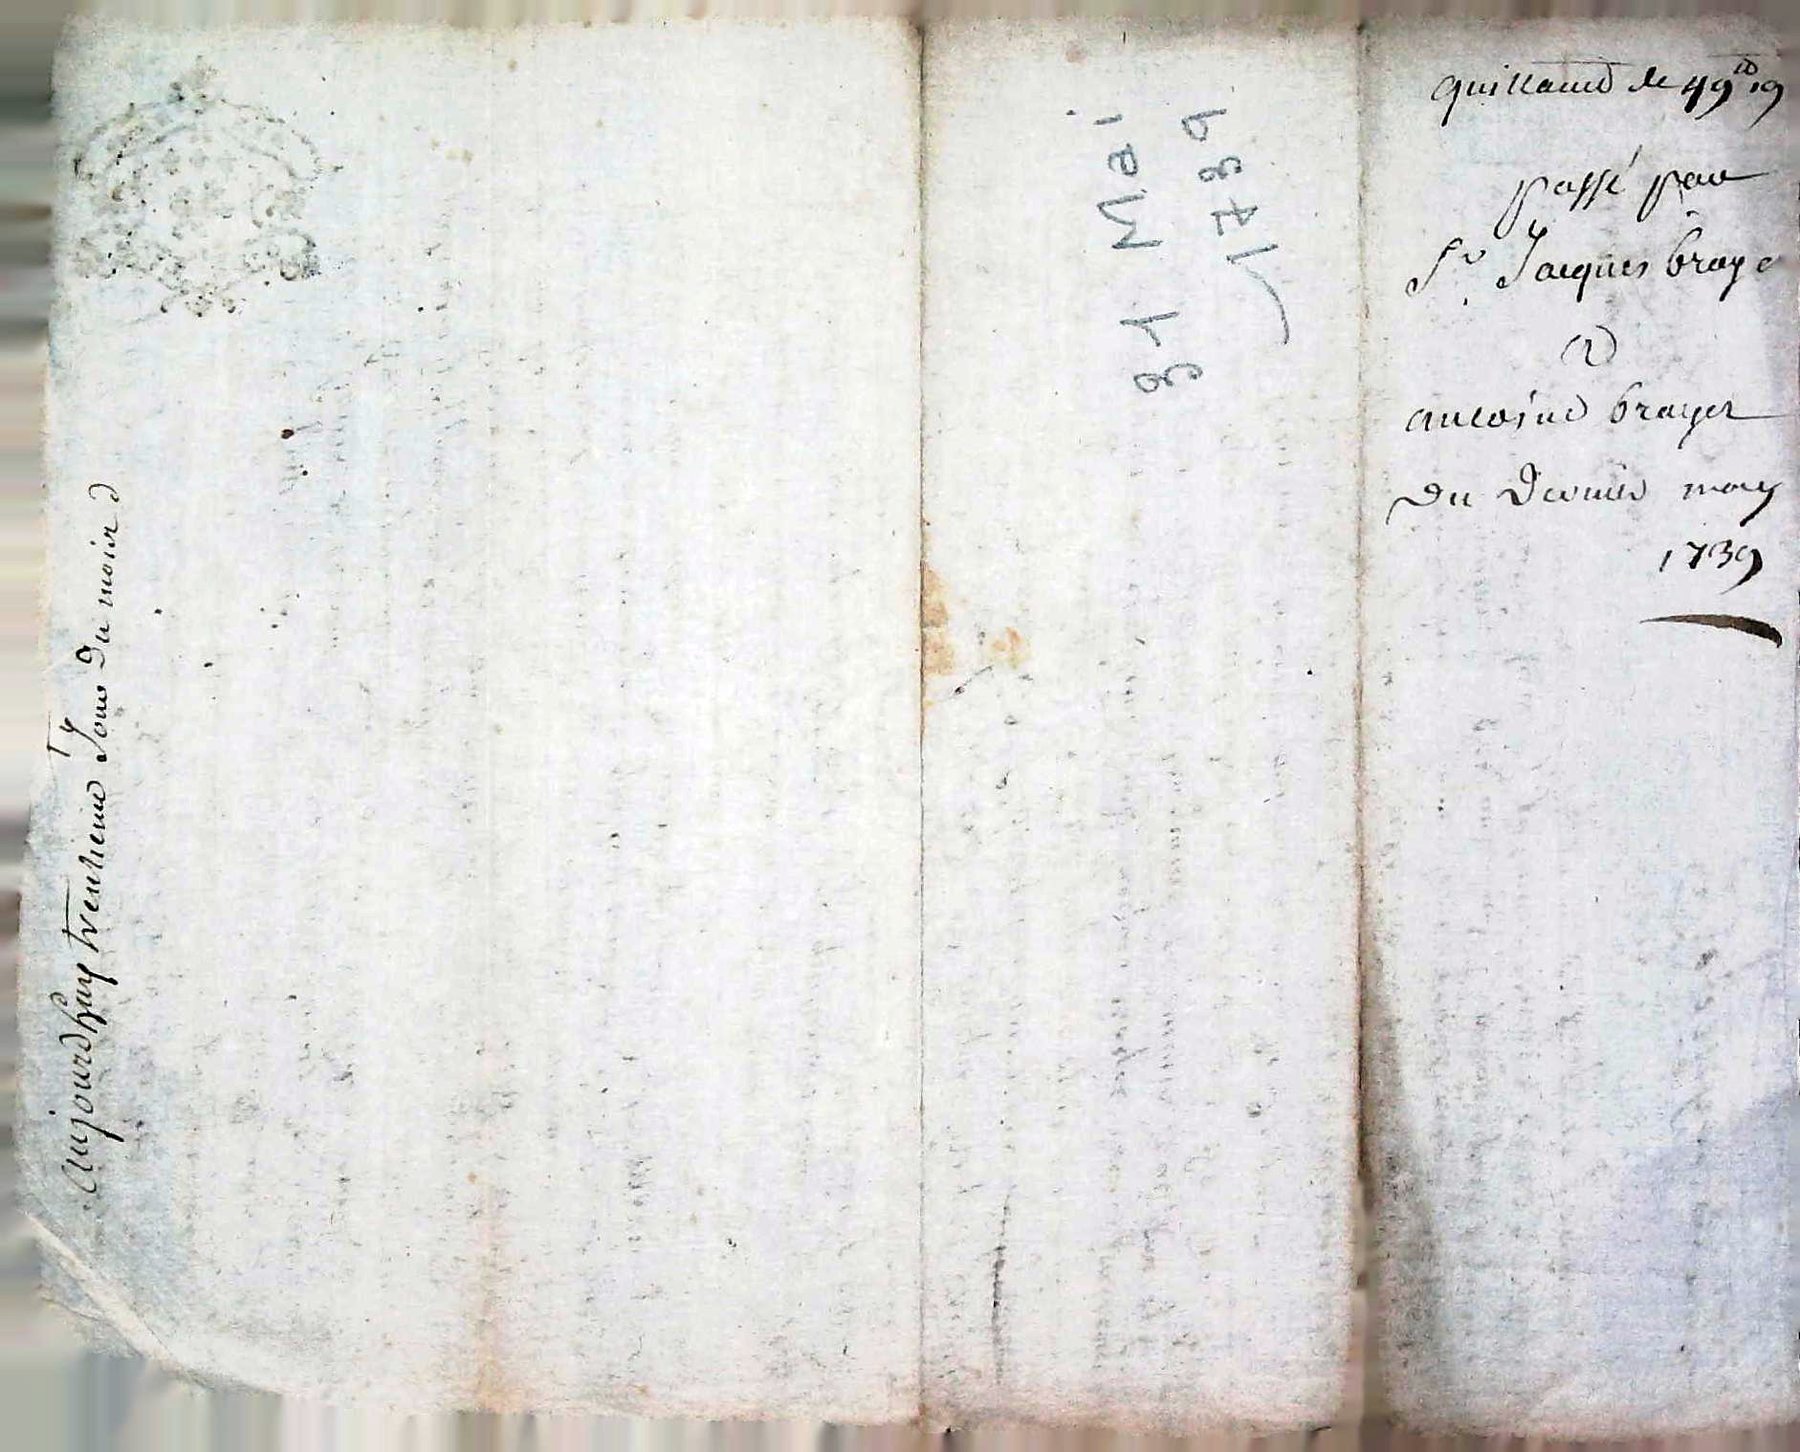 quittance de 49ᵗᵗ 19
passé par
Sʳ Jacques braye
a
antoine brayer
du dernier may
1739
31 Mai
1739
Aujourdhuy trentieme Jour du mois d